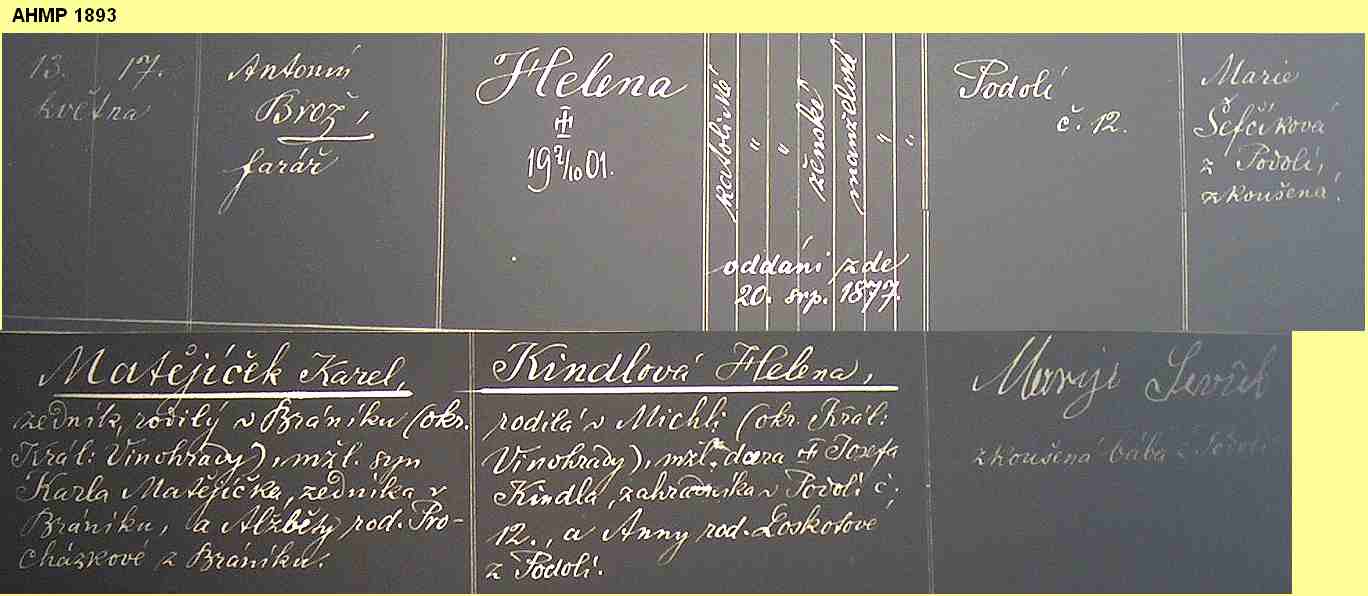 AHMP 1893
13. 17.
května
Antonín
Brož,
farář
Helena
19 2/10 01.
katolické
" "
ženské
manželské
" "
oddáni zde
20. srp. 1877.
Podolí
č. 12.
Marie
Šefčíková
z Podolí,
zkoušená.
Matějíček Karel,
zedník, rodilý v Bráníku (okr.
Král: Vinohrady), mžl. syn
Karla Matějíčka, zedníka v
Bráníku, a Alžběty rod. Pro-
cházkové z Bráníku.
Kindlová Helena,
rodilá v Michli (okr. Král:
Vinohrady), mžl. dcera ‡ Josefa
Kindla, zahradníka v Podolí č.
12., a Anny rod. Loskotové
z Podolí.
zkoušená bába z Podolí